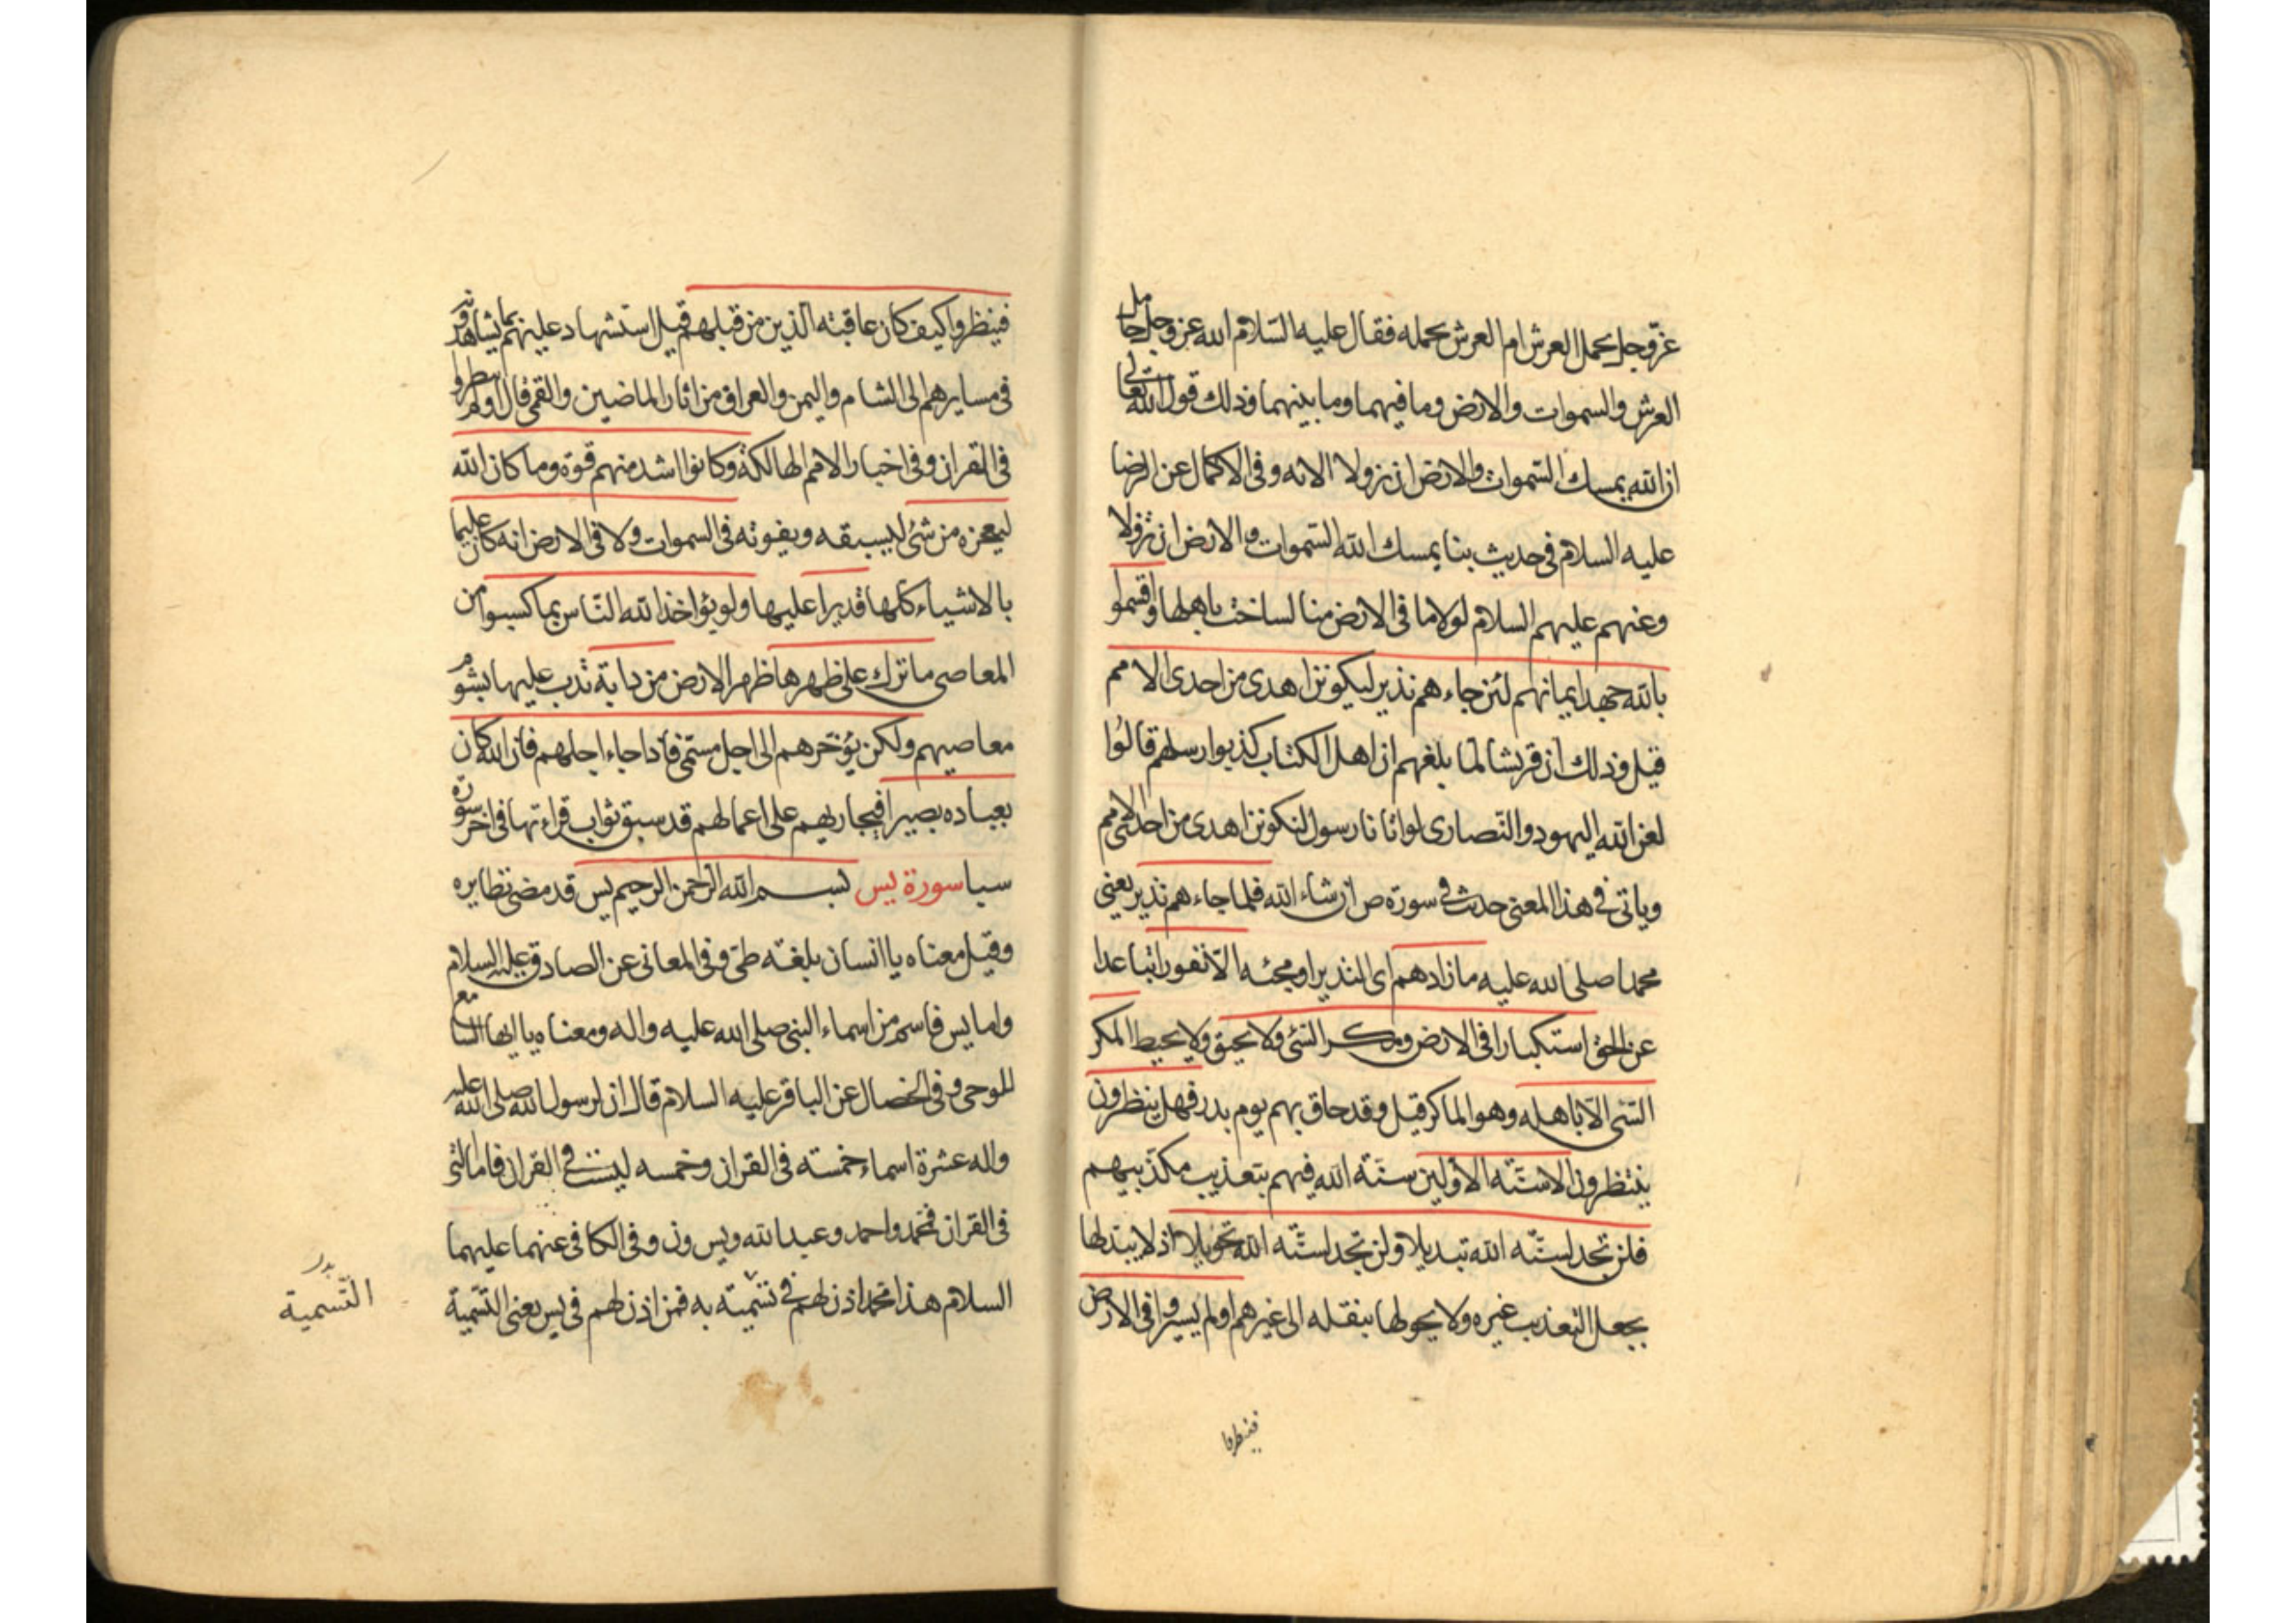 عزّ وجل يحمل العرش ام العرش يحمله فقال عليه السّلام الله عز وجل حامل
العرش والسموات والارض وما فيهما وما بينهما وذلك قول الله تعالى
ان الله يمسك السّموات والارض ان تزولا الايه وفى الاكمال عن الرضا
عليه السلام فى حديث بنا يمسك الله السّموات والارض ان تزولا
وعنهم عليهم السلام لولا ما فى الارض منا لساخت باهلها واقسموا
بالله جهد ايمانهم لئن جاءهم نذير ليكونن اهدى من احدى الامم
قيل وذلك ان قريشا لما بلغهم ان اهل الكتاب كذبوا رسلهم قالوا
لعن الله اليهود والنّصارى لو اتانا رسول لنكونن اهدى من احدى الامم
وياتى فى هذا المعنى حدث فى سورة ص ان شاء الله فلما جاءهم نذير يعنى
محمدا صلى الله عليه ما زادهم اى النذير او مجئه الّا نفورا تباعدا
عن الحق استكبارا فى الارض ومكر السّئ ولا يحيق ولا يحيط المكر
السّئ الّا باهله وهو الماكر قيل وقد حاق بهم يوم بدر فهل ينظرون
ينتظرون الا سنّه الاوّلين سنّه الله فيهم بتعذيب مكذّبيهم
فلن تجد لسنّه الله تبديلا ولن تجد لسنّه الله تحويلا اذ لا يبدلها
بجعل التعذيب غيره ولا يحولها بنقله الى غيرهم اولم يسيروا فى الارض
فينظروا
فينظروا كيف كان عاقبته الّذين من قبلهم قيل استشهاد عليهم بما يشاهدونه
فى مسايرهم الى الشام واليمن والعراق من اثار الماضين والقمى قال اولم ينظروا
فى القران وفى اخبار الامم الهالكة وكانوا اشد منهم قوّة وما كان الله
ليعجزه من شئ ليسبقه ويفوته فى السموات ولا فى الارض انه كان عليما
بالاشياء كلها قديرا عليها ولو يؤاخذ الله النّاس بما كسبوا من
المعاصى ما ترك على ظهرها ظهر الارض من دابة تدب عليها بشوم
معاصيهم ولكن يؤخّرهم الى اجل مسمّى فاذا جاء اجلهم فان الله كان
بعباده بصيرا فيجازيهم على اعمالهم قد سبق ثواب قراءتها فى اخر سورة
سبا سورة يس بسم الله الرّحمن الرحيم يس قد مضى نظايره
وقيل معناه يا انسان بلغته طىّ وفى المعانى عن الصادق عليه السلام
واما يس فاسم من اسماء النبى صلى الله عليه واله ومعناه يا ايها السامع
للوحى وفى الخصال عن الباقر عليه السلام قال ان لرسول الله صلى الله عليه
واله عشرة اسماء خمسته فى القران وخمسه ليست فى القران فاما التى
فى القران فمحمد واحمد وعبد الله ويس ون وفى الكافى عنهما عليهما
السلام هذا محمد اذن لهم فى تسميته به فمن اذن لهم فى يس يعنى التّسمية
التّسمية